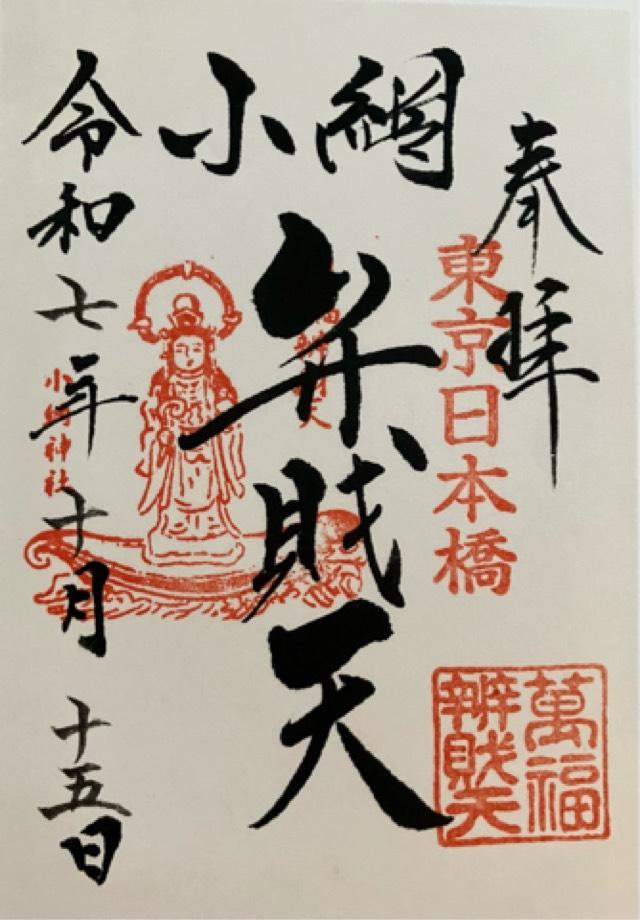 奉拝
東京日本橋
小網
弁財天
萬福
辨財天
小網神社
令和七年十月十五日